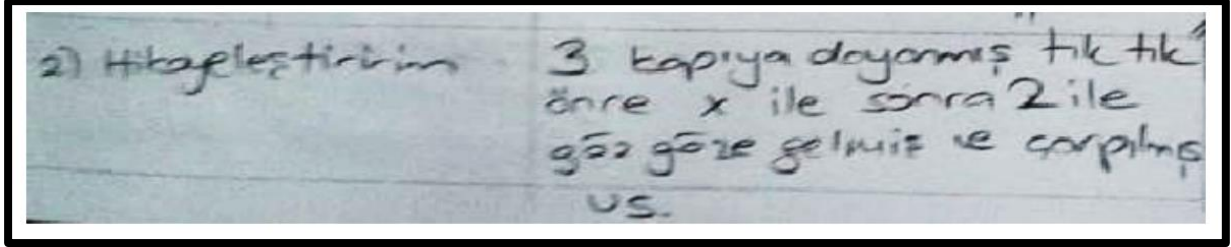 2) Hikayeleştiririm 3 kapıya dayanmış tık tık"
önce x ile sonra 2 ile
göz göze gelmiş ve çarpılmış
vs.